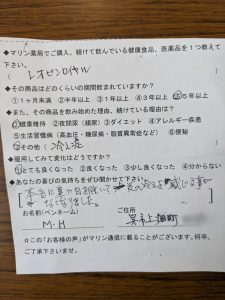 ◆マリン薬局でご購入、続けて飲んでいる健康食品、医薬品を1つ教えて
下さい。
レオピンロイヤル
◆その商品はどのくらいの期間飲まれていますか？
①1ヶ月未満 ②半年以上 ③1年以上 ④3年以上 ⑤5年以上
◆また、その商品を飲み始めた理由、続けている理由は？
①健康維持 ②夜間尿(頻尿) ③ダイエット ④アレルギー疾患
⑤生活習慣病(高血圧・糖尿病・脂質異常症など) ⑥便秘
⑦その他( 冷え症
◆服用してみて変化はどうですか？
①とても良くなった ②良くなった ③少し良くなった ④分からない
◆あなたの喜びの気持ちをぜひ聞かせて下さい。
本当に寒い日を除いて 足の冷えを感じる事が
なくなりました。
お名前(ペンネーム) ご住所
M・H 呉市上畑町
☆この「お客様の声」がマリン通信に載ることがございます。何卒、
ご了承下さいませ。